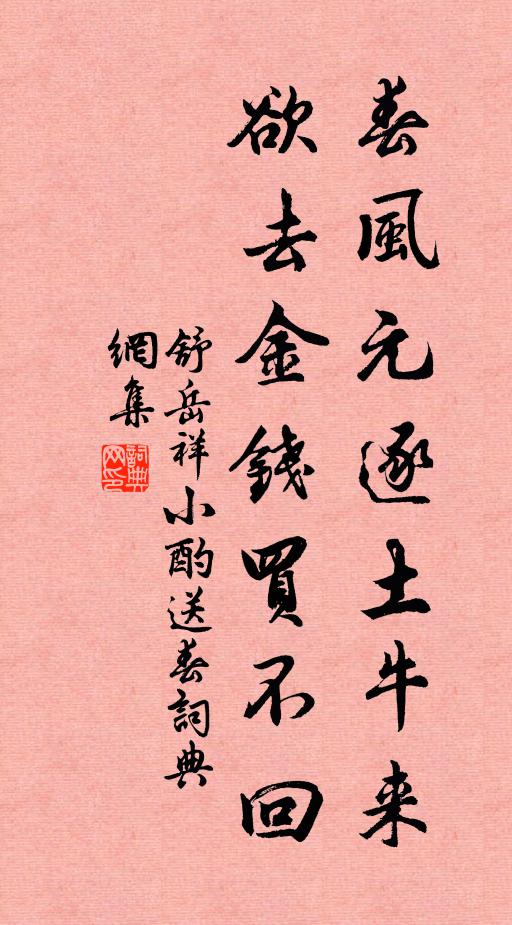 春風元逐土牛来
欲去金錢買不回
舒岳祥小酌送春詞典
網集
詞典网印